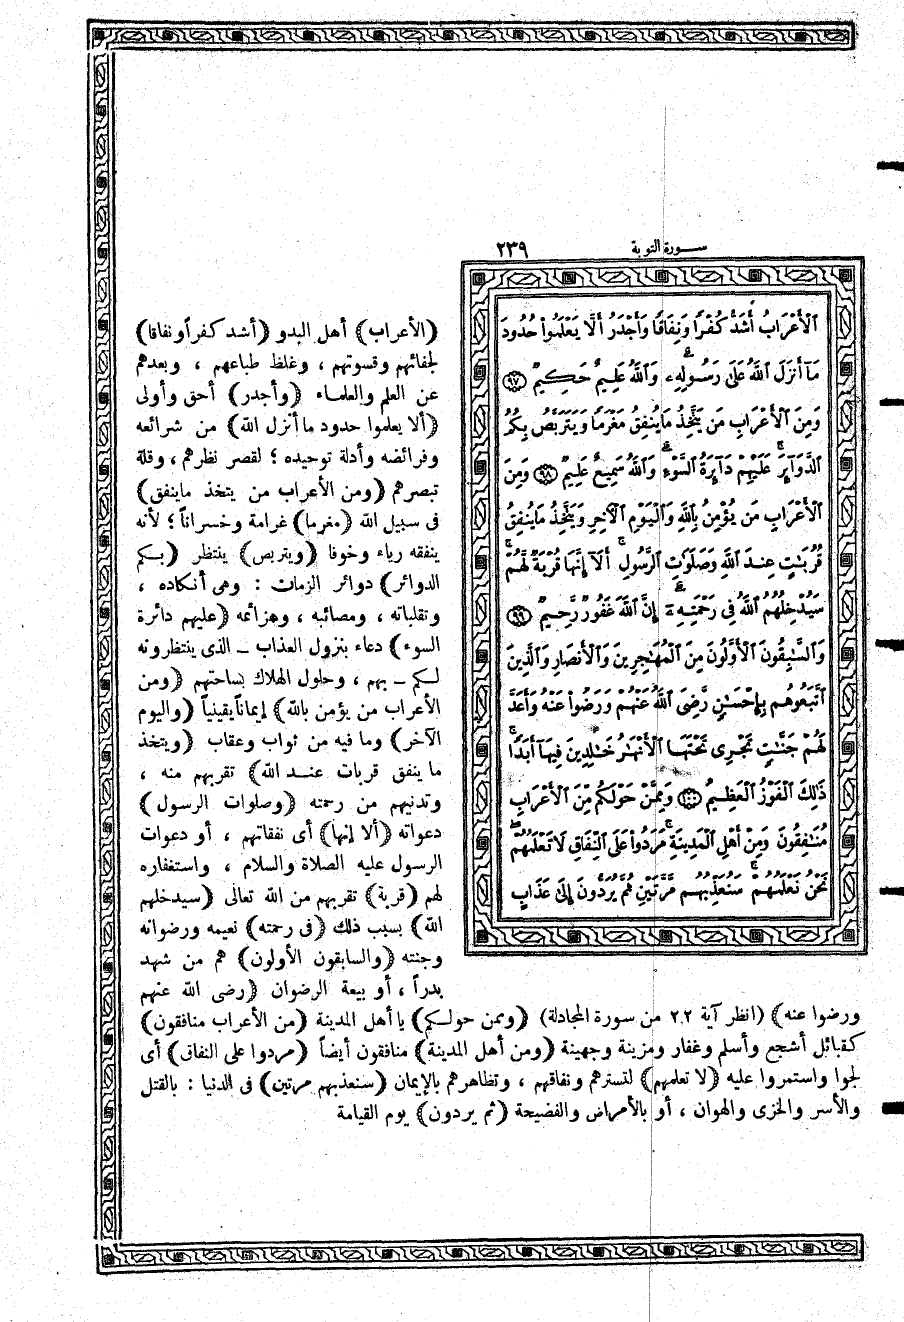 سورة التوبة ٢٣٩
ٱلْأَعْرَابُ أَشَدُّ كُفْرًا وَنِفَاقًا وَأَجْدَرُ أَلَّا يَعْلَمُوا۟ حُدُودَ
مَآ أَنزَلَ ٱللَّهُ عَلَىٰ رَسُولِهِۦ ۗ وَٱللَّهُ عَلِيمٌ حَكِيمٌ ﴿٩٧﴾
وَمِنَ ٱلْأَعْرَابِ مَن يَتَّخِذُ مَا يُنفِقُ مَغْرَمًا وَيَتَرَبَّصُ بِكُمُ
ٱلدَّوَآئِرَ ۚ عَلَيْهِمْ دَآئِرَةُ ٱلسَّوْءِ ۗ وَٱللَّهُ سَمِيعٌ عَلِيمٌ ﴿٩٨﴾ وَمِنَ
ٱلْأَعْرَابِ مَن يُؤْمِنُ بِٱللَّهِ وَٱلْيَوْمِ ٱلْـَٔاخِرِ وَيَتَّخِذُ مَا يُنفِقُ
قُرُبَـٰتٍ عِندَ ٱللَّهِ وَصَلَوَٰتِ ٱلرَّسُولِ ۚ أَلَآ إِنَّهَا قُرْبَةٌ لَّهُمْ ۚ
سَيُدْخِلُهُمُ ٱللَّهُ فِى رَحْمَتِهِۦٓ ۗ إِنَّ ٱللَّهَ غَفُورٌ رَّحِيمٌ ﴿٩٩﴾
وَٱلسَّـٰبِقُونَ ٱلْأَوَّلُونَ مِنَ ٱلْمُهَـٰجِرِينَ وَٱلْأَنصَارِ وَٱلَّذِينَ
ٱتَّبَعُوهُم بِإِحْسَـٰنٍ رَّضِىَ ٱللَّهُ عَنْهُمْ وَرَضُوا۟ عَنْهُ وَأَعَدَّ
لَهُمْ جَنَّـٰتٍ تَجْرِى تَحْتَهَا ٱلْأَنْهَـٰرُ خَـٰلِدِينَ فِيهَآ أَبَدًا ۚ
ذَٰلِكَ ٱلْفَوْزُ ٱلْعَظِيمُ ﴿١٠٠﴾ وَمِمَّنْ حَوْلَكُم مِّنَ ٱلْأَعْرَابِ
مُنَـٰفِقُونَ ۖ وَمِنْ أَهْلِ ٱلْمَدِينَةِ ۖ مَرَدُوا۟ عَلَى ٱلنِّفَاقِ لَا تَعْلَمُهُمْ ۖ
نَحْنُ نَعْلَمُهُمْ ۚ سَنُعَذِّبُهُم مَّرَّتَيْنِ ثُمَّ يُرَدُّونَ إِلَىٰ عَذَابٍ
(الأعراب) أهل البدو (أشد كفراً ونفاقا)
لجفائهم وقسوتهم ، وغلظ طباعهم ، وبعدهم
عن العلم والعلماء (وأجدر) أحق وأولى
(ألا يعلموا حدود ما أنزل الله) من شرائعه
وفرائضه وأدلة توحيده ؛ لقصر نظرهم ، وقلة
تبصرهم (ومن الأعراب من يتخذ ماينفق)
فى سبيل الله (مغرما) غرامة وخسراناً ؛ لأنه
ينفقه رياء وخوفا (ويتربص) ينتظر (بكم
الدوائر) دوائر الزمان : وهى أنكاده ،
وتقلباته ، ومصائبه ، وهزائمه (عليهم دائرة
السوء) دعاء بنزول العذاب ــ الذى ينتظرونه
لكم ــ بهم ، وحلول الهلاك بساحتهم (ومن
الأعراب من يؤمن بالله) إيماناً يقينياً (واليوم
الآخر) وما فيه من ثواب وعقاب (ويتخذ
ما ينفق قربات عند الله) تقربهم منه ،
وتدنيهم من رحمته (وصلوات الرسول)
دعواته (ألا إنها) أى نفقاتهم ، أو دعوات
الرسول عليه الصلاة والسلام ، واستغفاره
لهم (قربة) تقربهم من الله تعالى (سيدخلهم
الله) بسبب ذلك (فى رحمته) نعيمه ورضوانه
وجنته (والسابقون الأولون) هم من شهد
بدراً ، أو بيعة الرضوان (رضى الله عنهم
ورضوا عنه) (انظر آية ٢٢ من سورة المجادلة) (وممن حولكم) يا أهل المدينة (من الأعراب منافقون)
كقبائل أشجع وأسلم وغفار ومزينة وجهينة (ومن أهل المدينة) منافقون أيضاً (مردوا على النفاق) أى
لجوا واستمروا عليه (لا تعلمهم) لتسترهم ونفاقهم ، وتظاهرهم بالإيمان (سنعذبهم مرتين) فى الدنيا : بالقتل
والأسر والخزى والهوان ، أو بالأمراض والفضيحة (ثم يردون) يوم القيامة